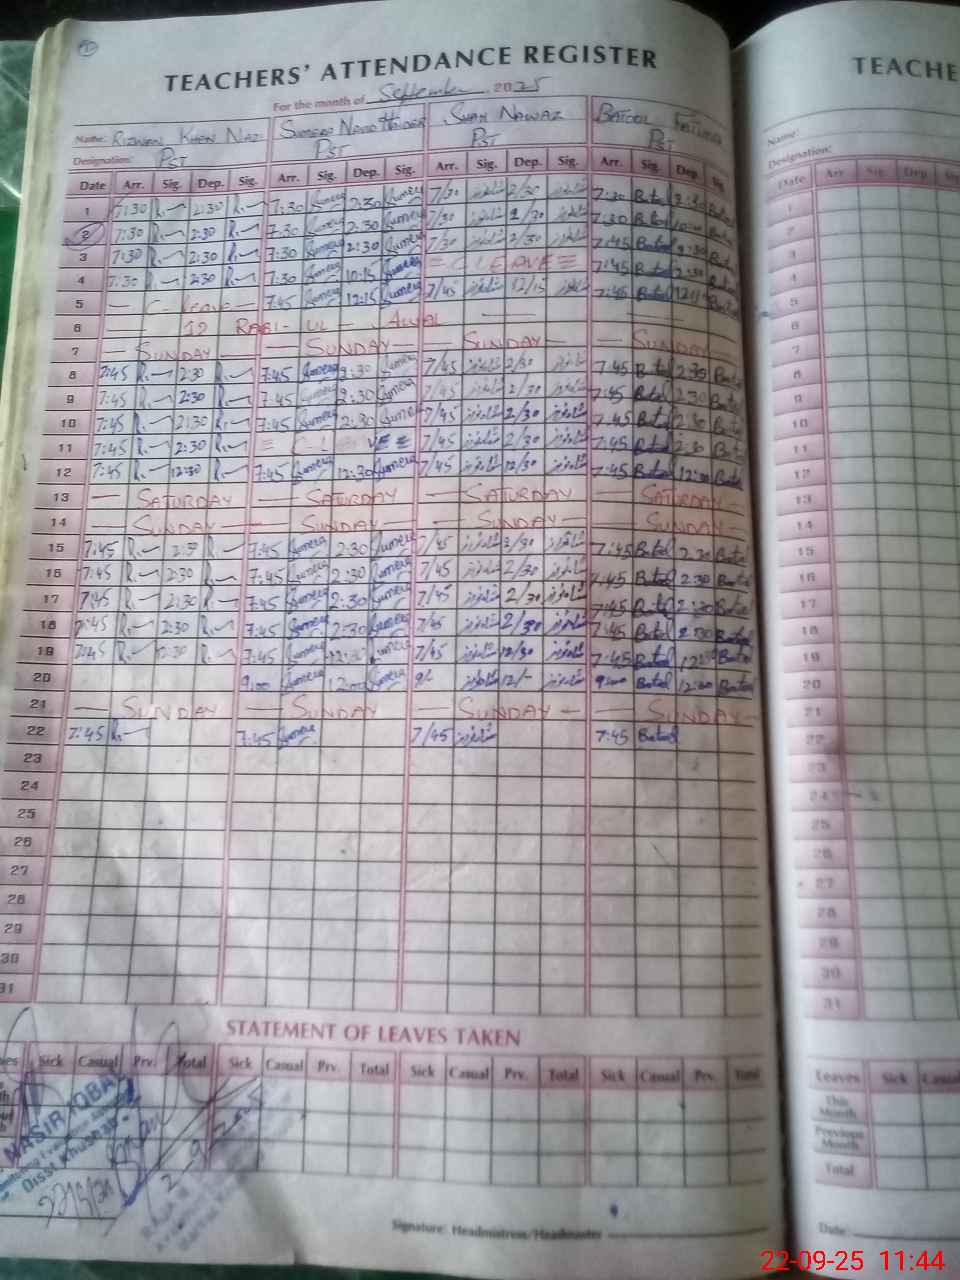 TEACHERS' ATTENDANCE REGISTER
For the month of September 2025
Name: RIZWAN KHAN NIAZI SHAH NAWAZ BATOOL FATIMA
Designation: PST PST PST PST
Date Arr. Sig. Dep. Sig. Arr. Sig. Dep. Sig. Arr. Sig. Dep. Sig. Arr. Sig. Dep. Sig.
1 7:30 2:30 7:30 Sumera 2:30 Sumera 7/30 شاہنواز 2/30 شاہنواز 7:30 Batool 2:30 Batool
2 7:30 2:30 7:30 Sumera 2:30 Sumera 7/30 شاہنواز 2/30 شاہنواز 7:30 Batool Batool
3 7:30 2:30 7:30 Sumera 2:30 Sumera 7/30 شاہنواز 2/30 شاہنواز 7:45 Batool 2:30 Batool
4 7:30 2:30 7:30 Sumera 10:15 Sumera = C LEAVE = 7:45 Batool 2:30 Batool
5 — C-Leave — 7:45 Sumera 12:15 Sumera 7/45 شاہنواز 12/15 شاہنواز 7:45 Batool Batool
6 — 12 RABI-UL-AWAL —
7 — SUNDAY — SUNDAY — SUNDAY — SUNDAY
8 7:45 2:30 7:45 Sumera 2:30 Sumera 7/45 شاہنواز 2/30 شاہنواز 7:45 Batool 2:30 Batool
9 7:45 2:30 7:45 Sumera 2:30 Sumera 7/45 شاہنواز 2/30 شاہنواز 7:45 Batool 2:30 Batool
10 7:45 2:30 7:45 Sumera 2:30 Sumera 7/45 شاہنواز 2/30 شاہنواز 7:45 Batool 2:30 Batool
11 7:45 2:30 7/45 شاہنواز 2/30 شاہنواز 7:45 Batool 2:30 Batool
12 7:45 12:30 7:45 Sumera 12:30 Sumera 7/45 شاہنواز 12/30 شاہنواز 7:45 Batool Batool
13 — SATURDAY — SATURDAY — SATURDAY — SATURDAY —
14 — SUNDAY — SUNDAY — SUNDAY — SUNDAY —
15 7:45 2:30 7:45 Sumera 2:30 Sumera 7/45 شاہنواز 2/30 شاہنواز 7:45 Batool 2:30 Batool
16 7:45 2:30 7:45 Sumera 2:30 Sumera 7/45 شاہنواز 2/30 شاہنواز 7:45 Batool 2:30 Batool
17 7:45 2:30 7:45 Sumera 2:30 Sumera 7/45 شاہنواز 2/30 شاہنواز 7:45 Batool 2:30 Batool
18 7:45 2:30 7:45 Sumera 2:30 Sumera 7/45 شاہنواز 2/30 شاہنواز 7:45 Batool 2:30 Batool
19 7:45 12:30 7:45 Sumera 12:30 Sumera 7/45 شاہنواز 12/30 شاہنواز 7:45 Batool Batool
20 9:00 Sumera 12:00 Sumera 9/- شاہنواز 12/- شاہنواز 9:00 Batool 12:00 Batool
21 — SUNDAY — SUNDAY — SUNDAY — SUNDAY —
22 7:45 7:45 Sumera 7/45 شاہنواز 7:45 Batool
23
24
25
26
27
28
29
30
31
STATEMENT OF LEAVES TAKEN
Sick Casual Prv. Total Sick Casual Prv. Total Sick Casual Prv. Total Sick Casual Prv. Total
NASIR IQBAL
Disst Khushab
Signature: Headmistress/Headmaster
TEACHE
Name:
Designation:
Date Arr Sig. Dep
1
2
3
4
5
6
7
8
9
10
11
12
13
14
15
16
17
18
19
20
21
22
23
24
25
26
27
28
29
30
31
Leaves Sick Casual
This Month
Previous Month
Total
Date:
22-09-25 11:44